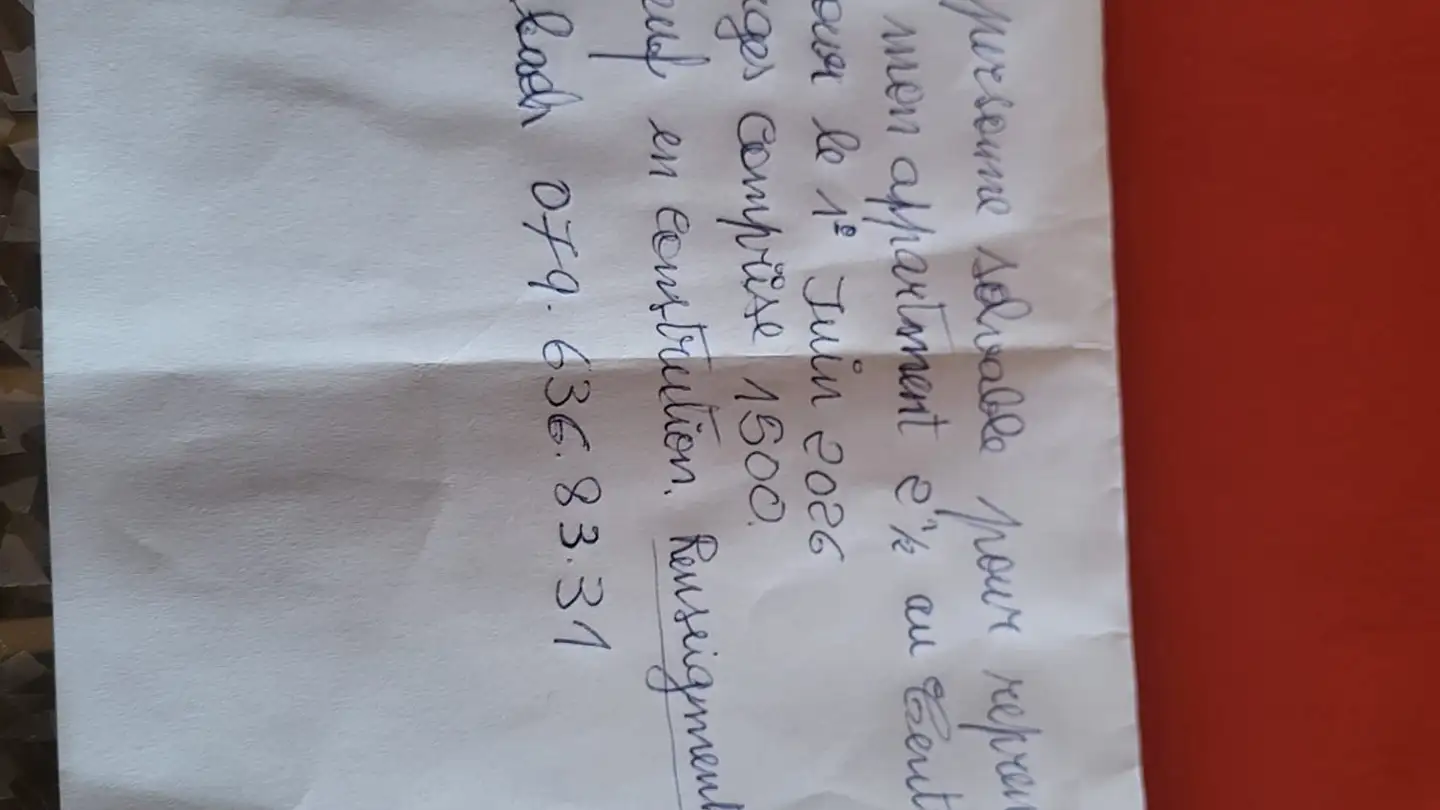 personne solvable pour repren
mon appartment 2 1/2 au Cent
our le 1º Juin 2026
ges comprise 1500.
euf en constrution. Renseigment
bach 079.636.83.31